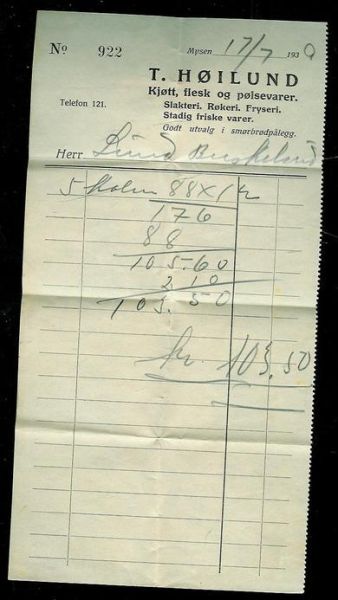 Nº 922 Mysen 17/7 1939
T. HØILUND
Kjøtt, flesk og pølsevarer.
Telefon 121.
Slakteri. Røkeri. Fryseri.
Stadig friske varer.
Godt utvalg i smørbrødpålegg.
Herr
5 88 x 1
176
88
105.60
2 10
103.50
kr. 103.50